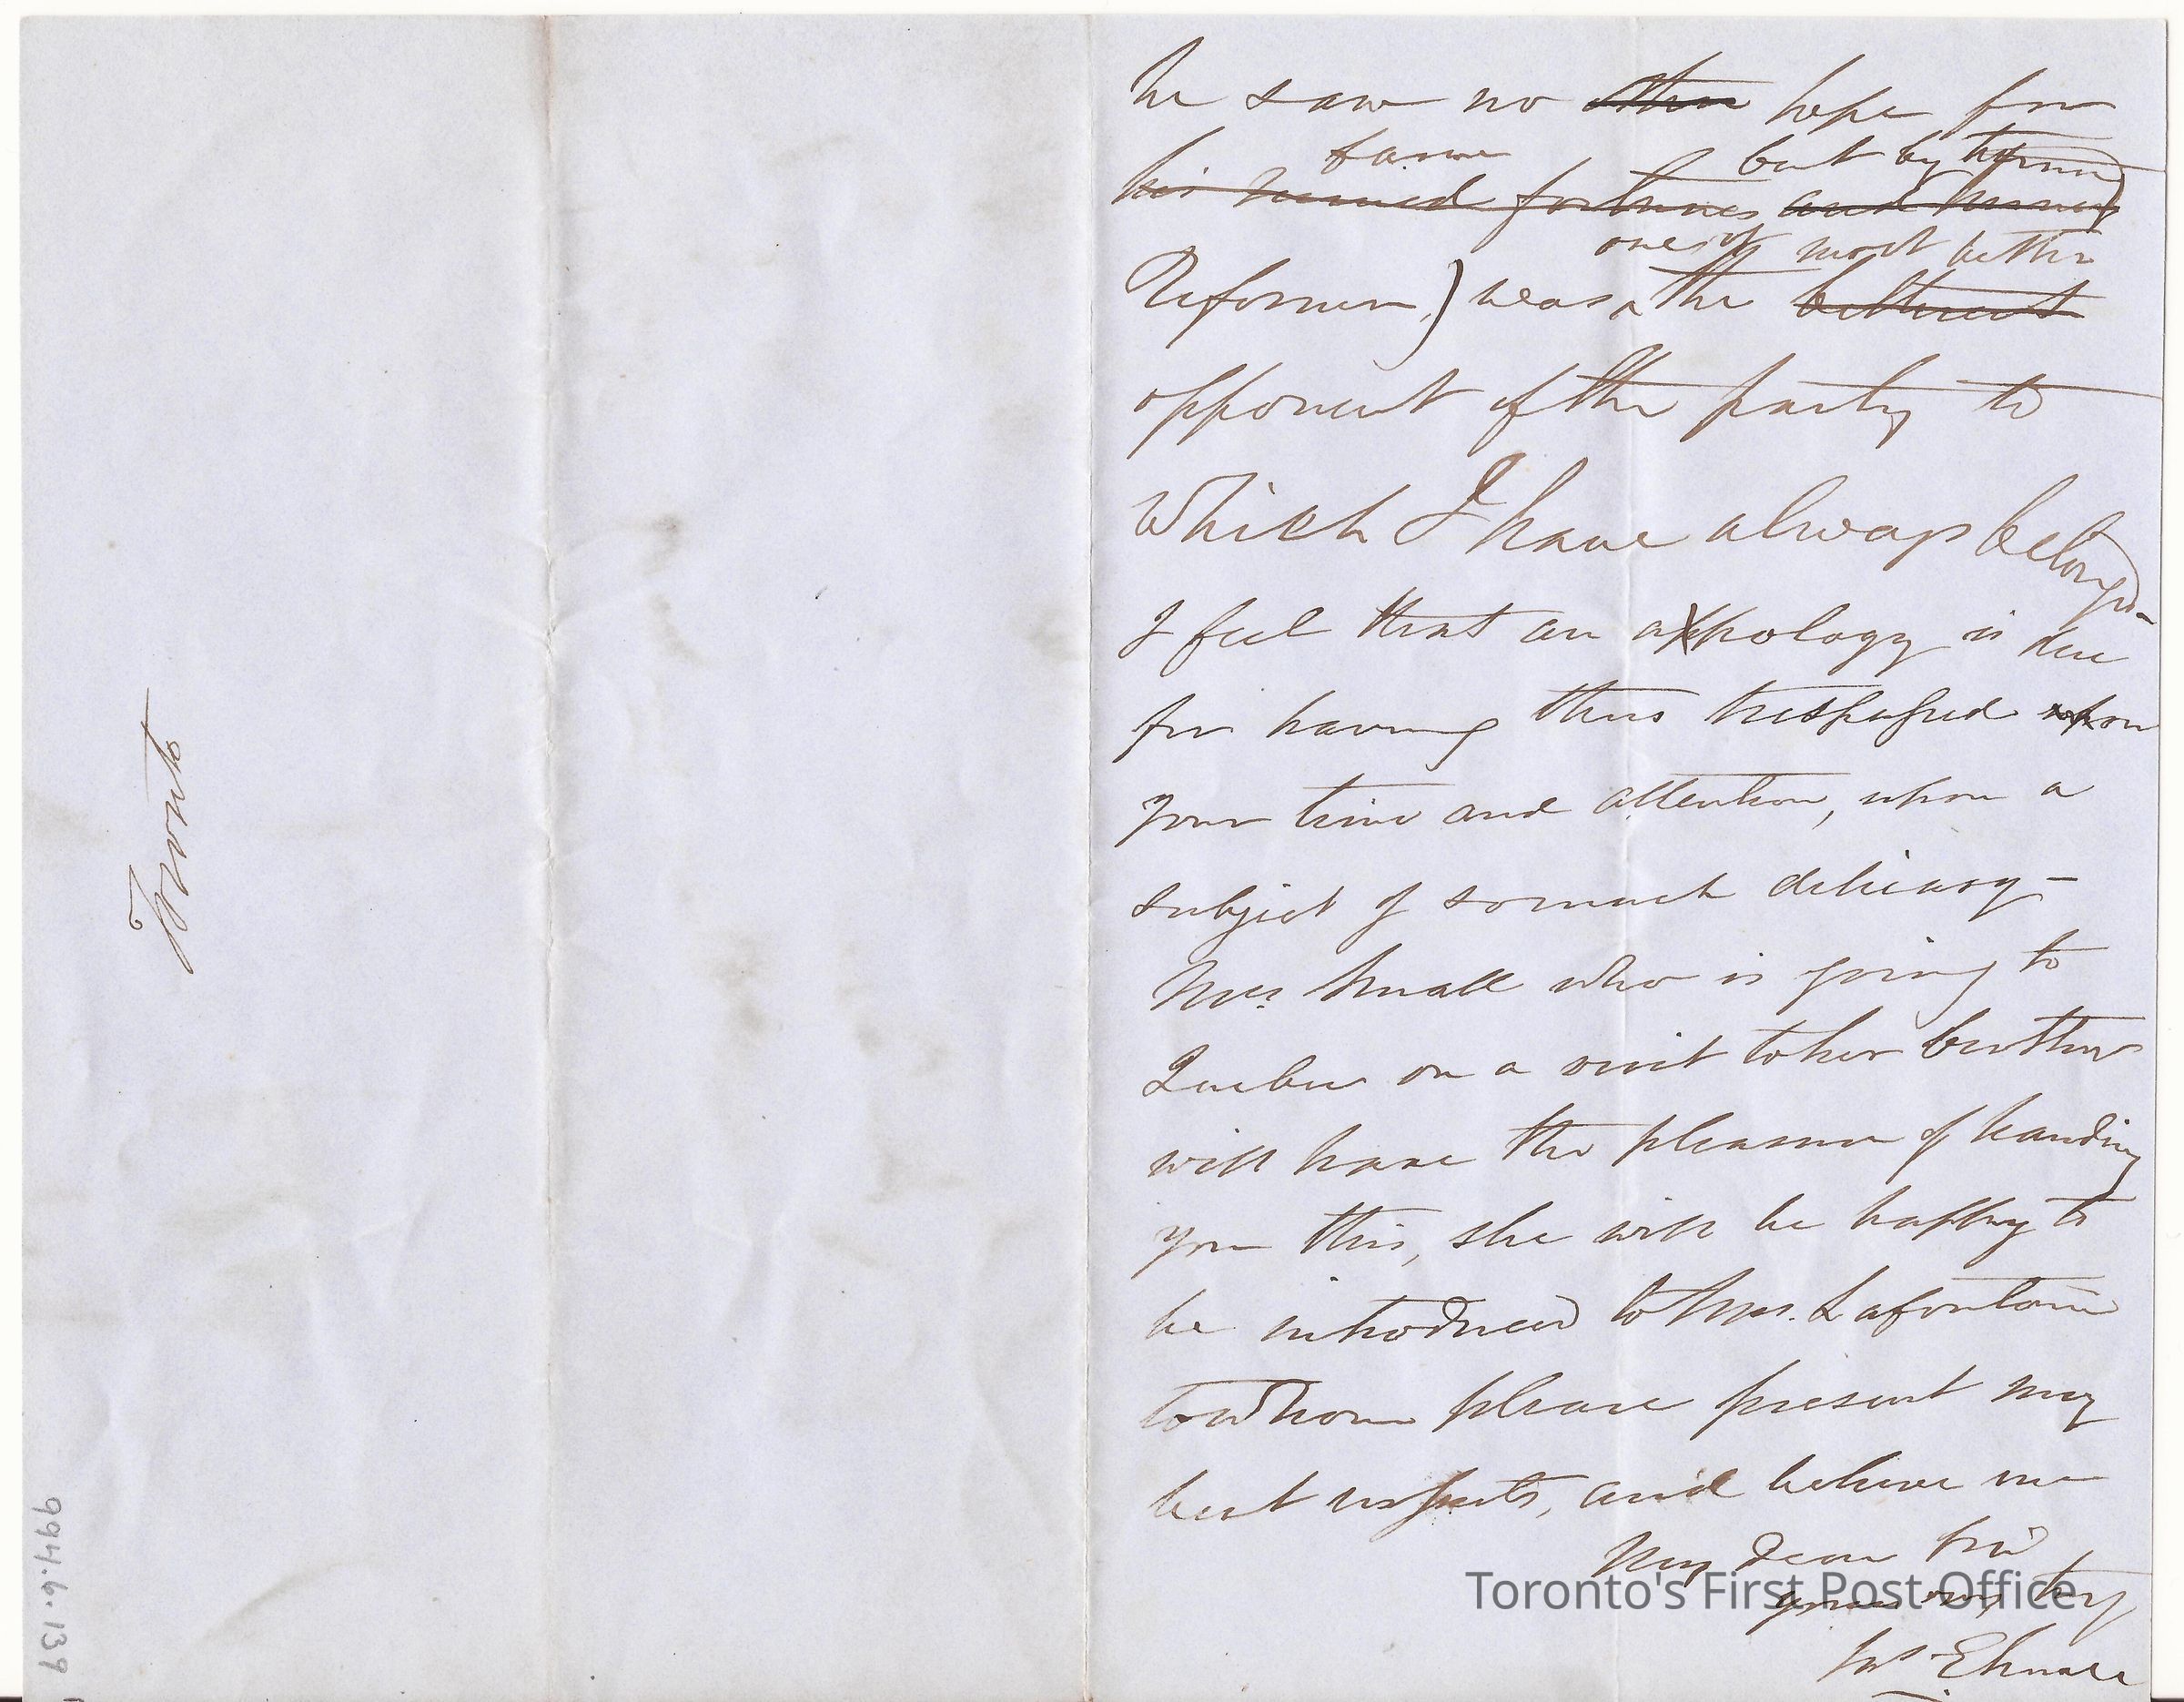 he saw no other hope for
fame but by turning
his ruined fortunes and
one of most bitter
Reformer) was the bitterest
opponent of the party to
which I have always belonged-
I feel that an apology is due
for having thus trespassed upon
your time and attention, upon a
subject of so much delicacy-
Mrs. Small who is going to
Quebec on a visit to her brother
will have the pleasure of handing
you this, she will be happy to
be introduced to Mrs. Lafontaine
to whom please present my
best respects, and believe me
My dear Sir
yours very try
Jas E Small
Toronto
994.6.139
Toronto's First Post Office